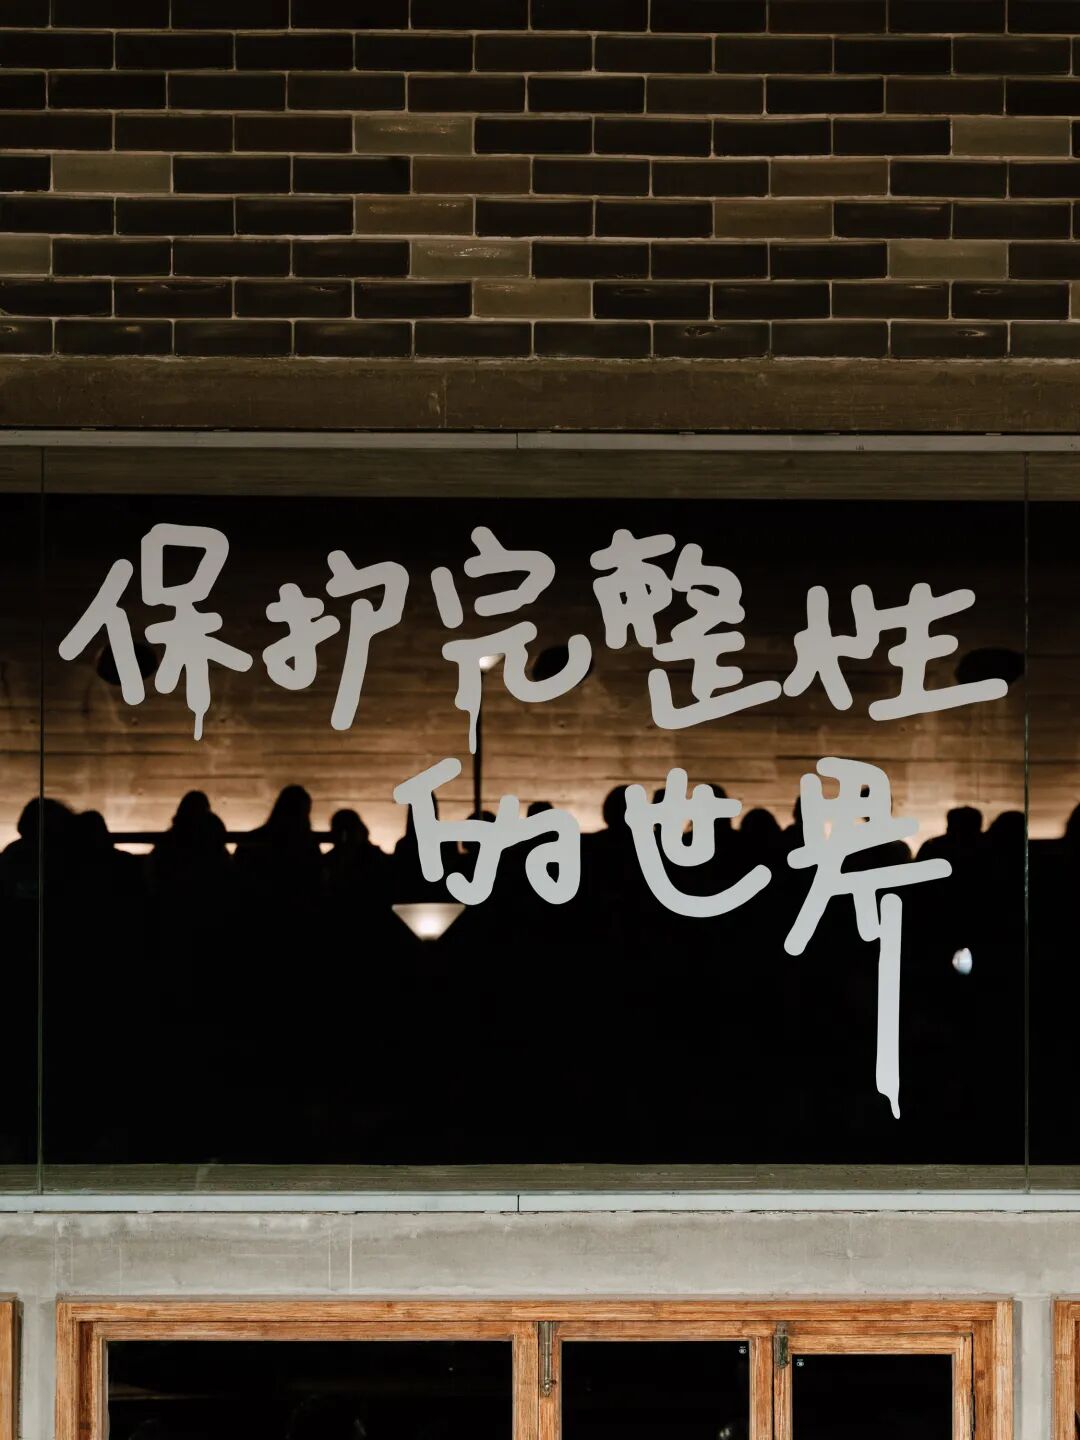 保护完整性
的世界